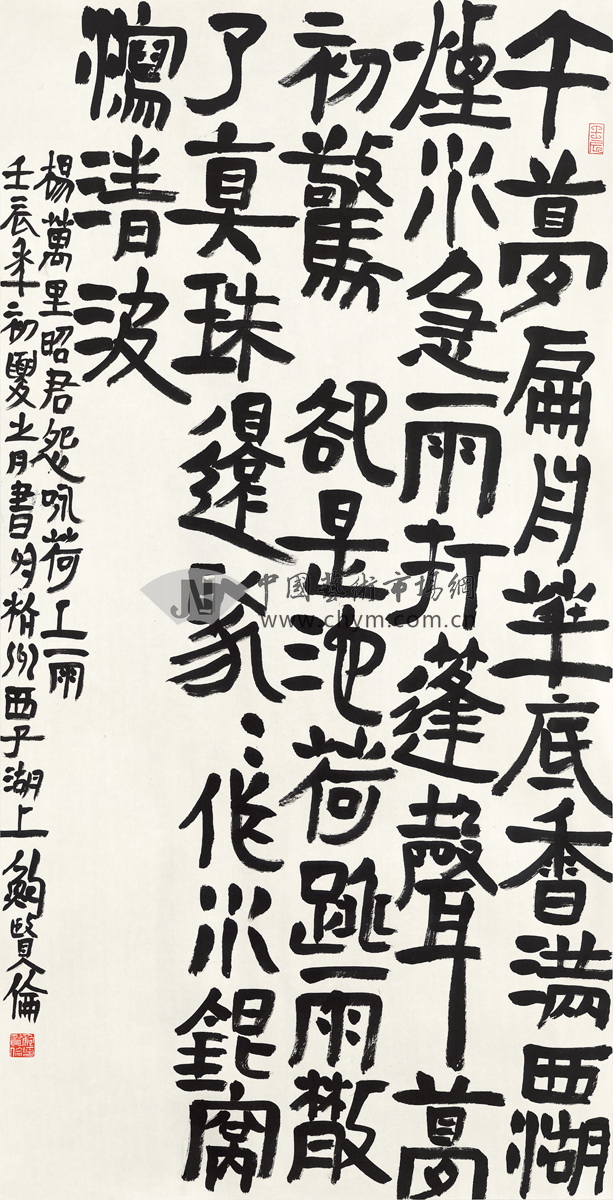 午夢扁舟華底香滿西湖
煙水急雨打蓬聲夢
初驚 卻是池荷跳雨散
了真珠還聚〻作水銀窩
瀉清波
楊萬里昭君怨咏荷上雨
壬辰年初夏之月書於杭州西子湖上 鮑賢倫
中國藝術市場網
www.chym.com.cn